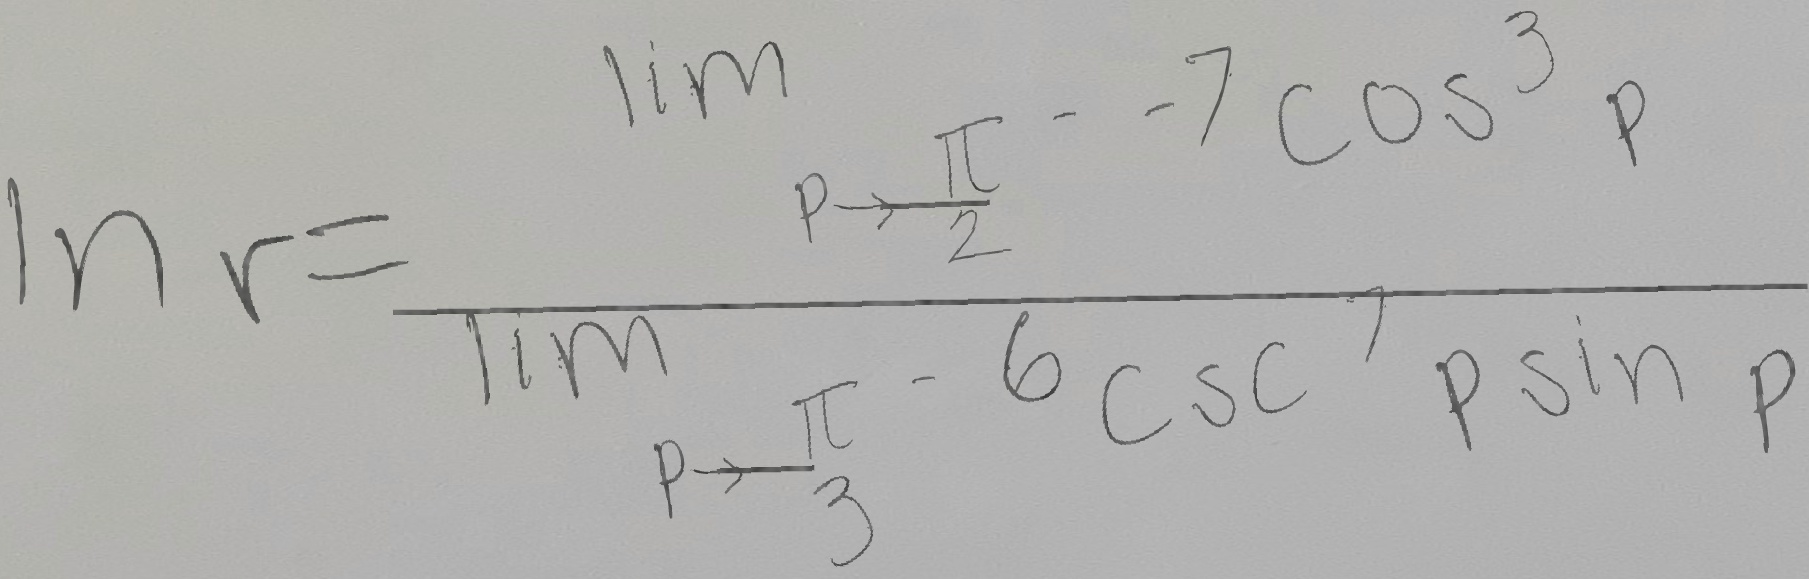 ln r = \frac{\lim_{p \to \frac{\pi}{2}^{-}} -7 \cos^3 p}{\lim_{p \to \frac{\pi}{3}^{-}} 6 \csc^7 p \sin p}